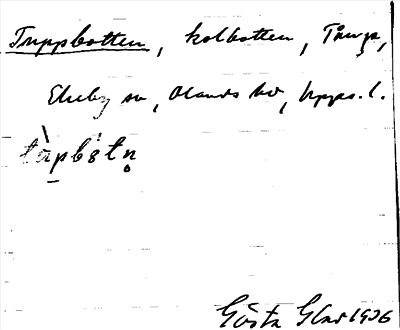 Truppbotten, kolbotten, Tånga,
Ekeby sn, Olands hd, Upps. l.
Gösta Glas 1926